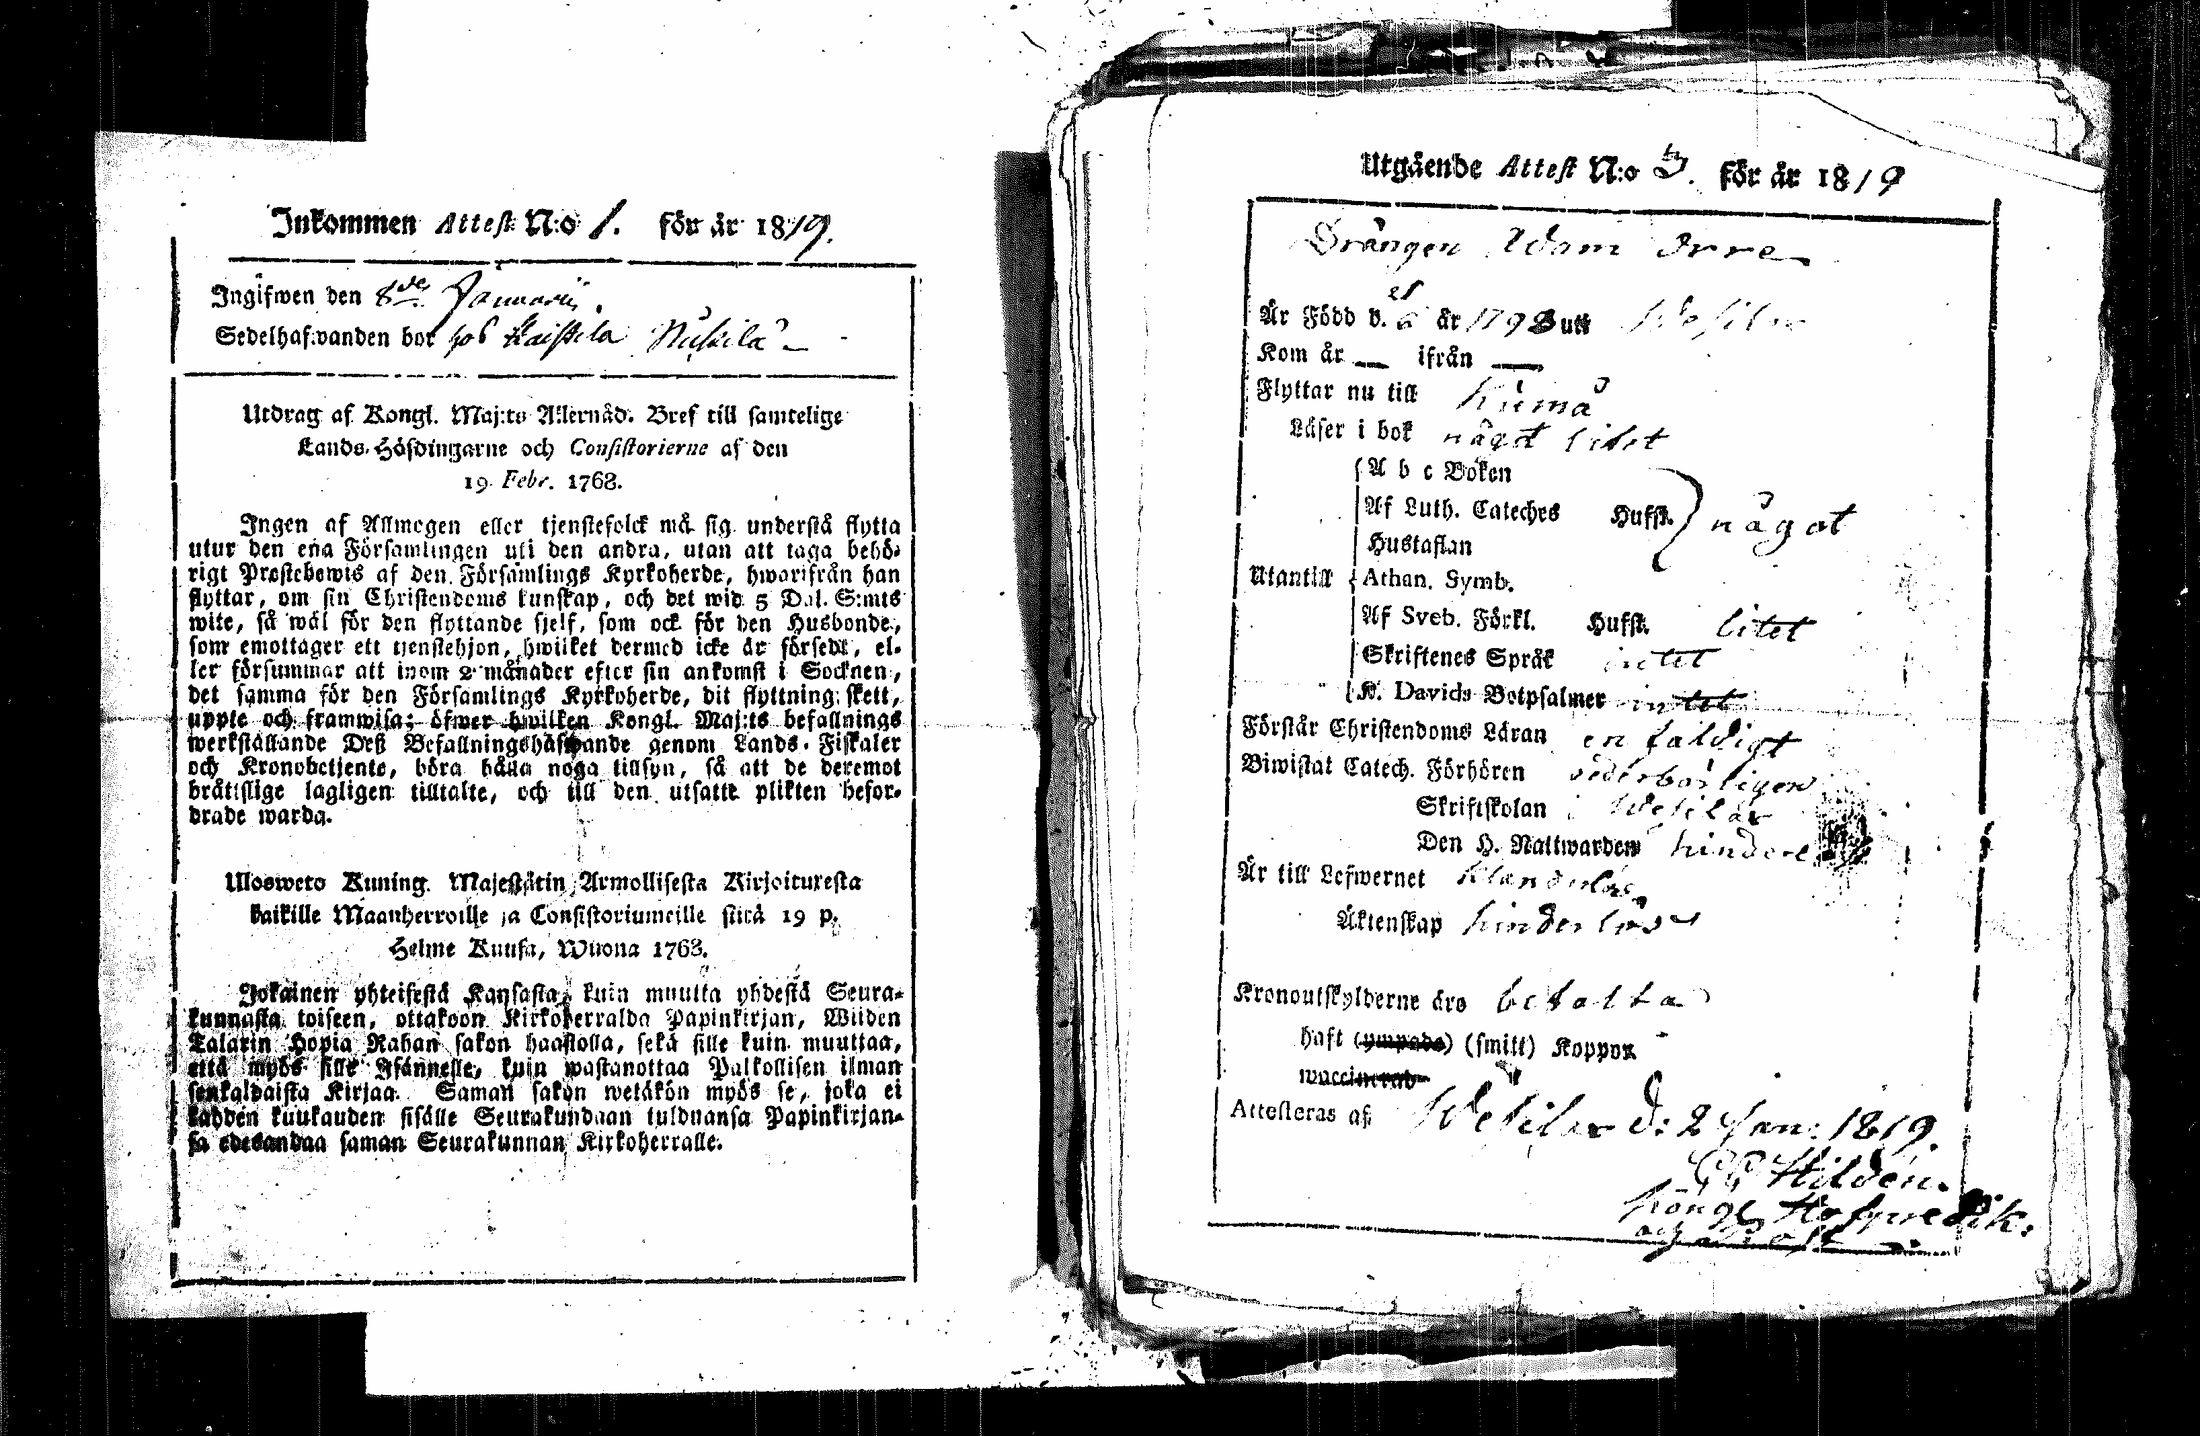 Inkommen Attest N:o 1. för år 1819.
Ingifwen den 8de Januarii.
Sedelhafwanden bor hos Kaistila Nukila
Utdrag af Kongl. Maj:ts Allernåd. Bref till samtelige
Lands-Höfdingarne och Consistorierne af den
19 Febr. 1763.
Ingen af Allmogen eller tjenstefolck må sig understå flytta
utur den ena Församlingen uti den andra, utan att taga behö-
rigt Prestebewis af den Församlings Kyrkoherde, hwarifrån han
flyttar, om sin Christendoms kunskap, och det wid 5 Dal. S:mts
wite, så wäl för den flyttande sjelf, som ock för den Husbonde,
som emottager ett tjenstehjon, hwilket dermed icke är försedt, el-
ler försummar att inom 2 månader efter sin ankomst i Socknen,
det samma för den Församlings Kyrkoherde, dit flyttning skett,
uppte och framwisa; öfwer hwilken Kongl. Maj:ts befallnings
werkställande Deß Befallningshafwande genom Lands-Fiskaler
och Kronobetjente, böra hålla noga tillsyn, så att de deremot
bråtslige lagligen tilltalte, och till den utsatte plikten befor-
drade warda.
Ulosweto Kuning. Majestätin Armollisesta Kirjoituxesta
kaikille Maanherroille ja Consistoriumeille siitä 19 p.
Helme Kuusa, Wuona 1763.
Jokainen yhteisestä Kansasta, kuin muutta yhdestä Seura-
kunnasta toiseen, ottakoon Kirkoherralda Papinkirjan, Wiiden
Talarin Hopia Rahan sakon haastolla, sekä sille kuin muuttaa,
että myös sille Isännelle, kuin wastanottaa Palkollisen ilman
senkaldaista Kirjaa. Saman sakon wetäkön myös se, joka ei
kahden kuukauden sisälle Seurakundaan tulduansa Papinkirjan-
sa edesandaa saman Seurakunnan Kirkoherralle.
Utgående Attest N:o 3. för år 1819
Drängen Adam Orre
Är Född d. 21 år 1798 uti Wesilax
Kom år — ifrån —
Flyttar nu till Kumå
Läser i bok något litet
A b c Boken
Af Luth. Cateches Hufst. något
Hustaflan
Utantill Athan. Symb.
Af Sveb. Förkl. Hufst. litet
Skriftenes Språk intet
K. Davids Botpsalmer intet
Förstår Christendoms Läran enfaldigt
Biwistat Catech. Förhören wederbörligen
Skriftskolan i Wesilax
Den H. Nattwarden
Är till Lefwernet klanderlös
Äktenskap hinderlös
Kronoutskylderne äro betalta
haft (ympade) (smitt) Koppor
waccinerad
Attesteras af Wesilax d: 2 Jan: 1819.
Hildén.
Kongl Hofpredik:
och Prost